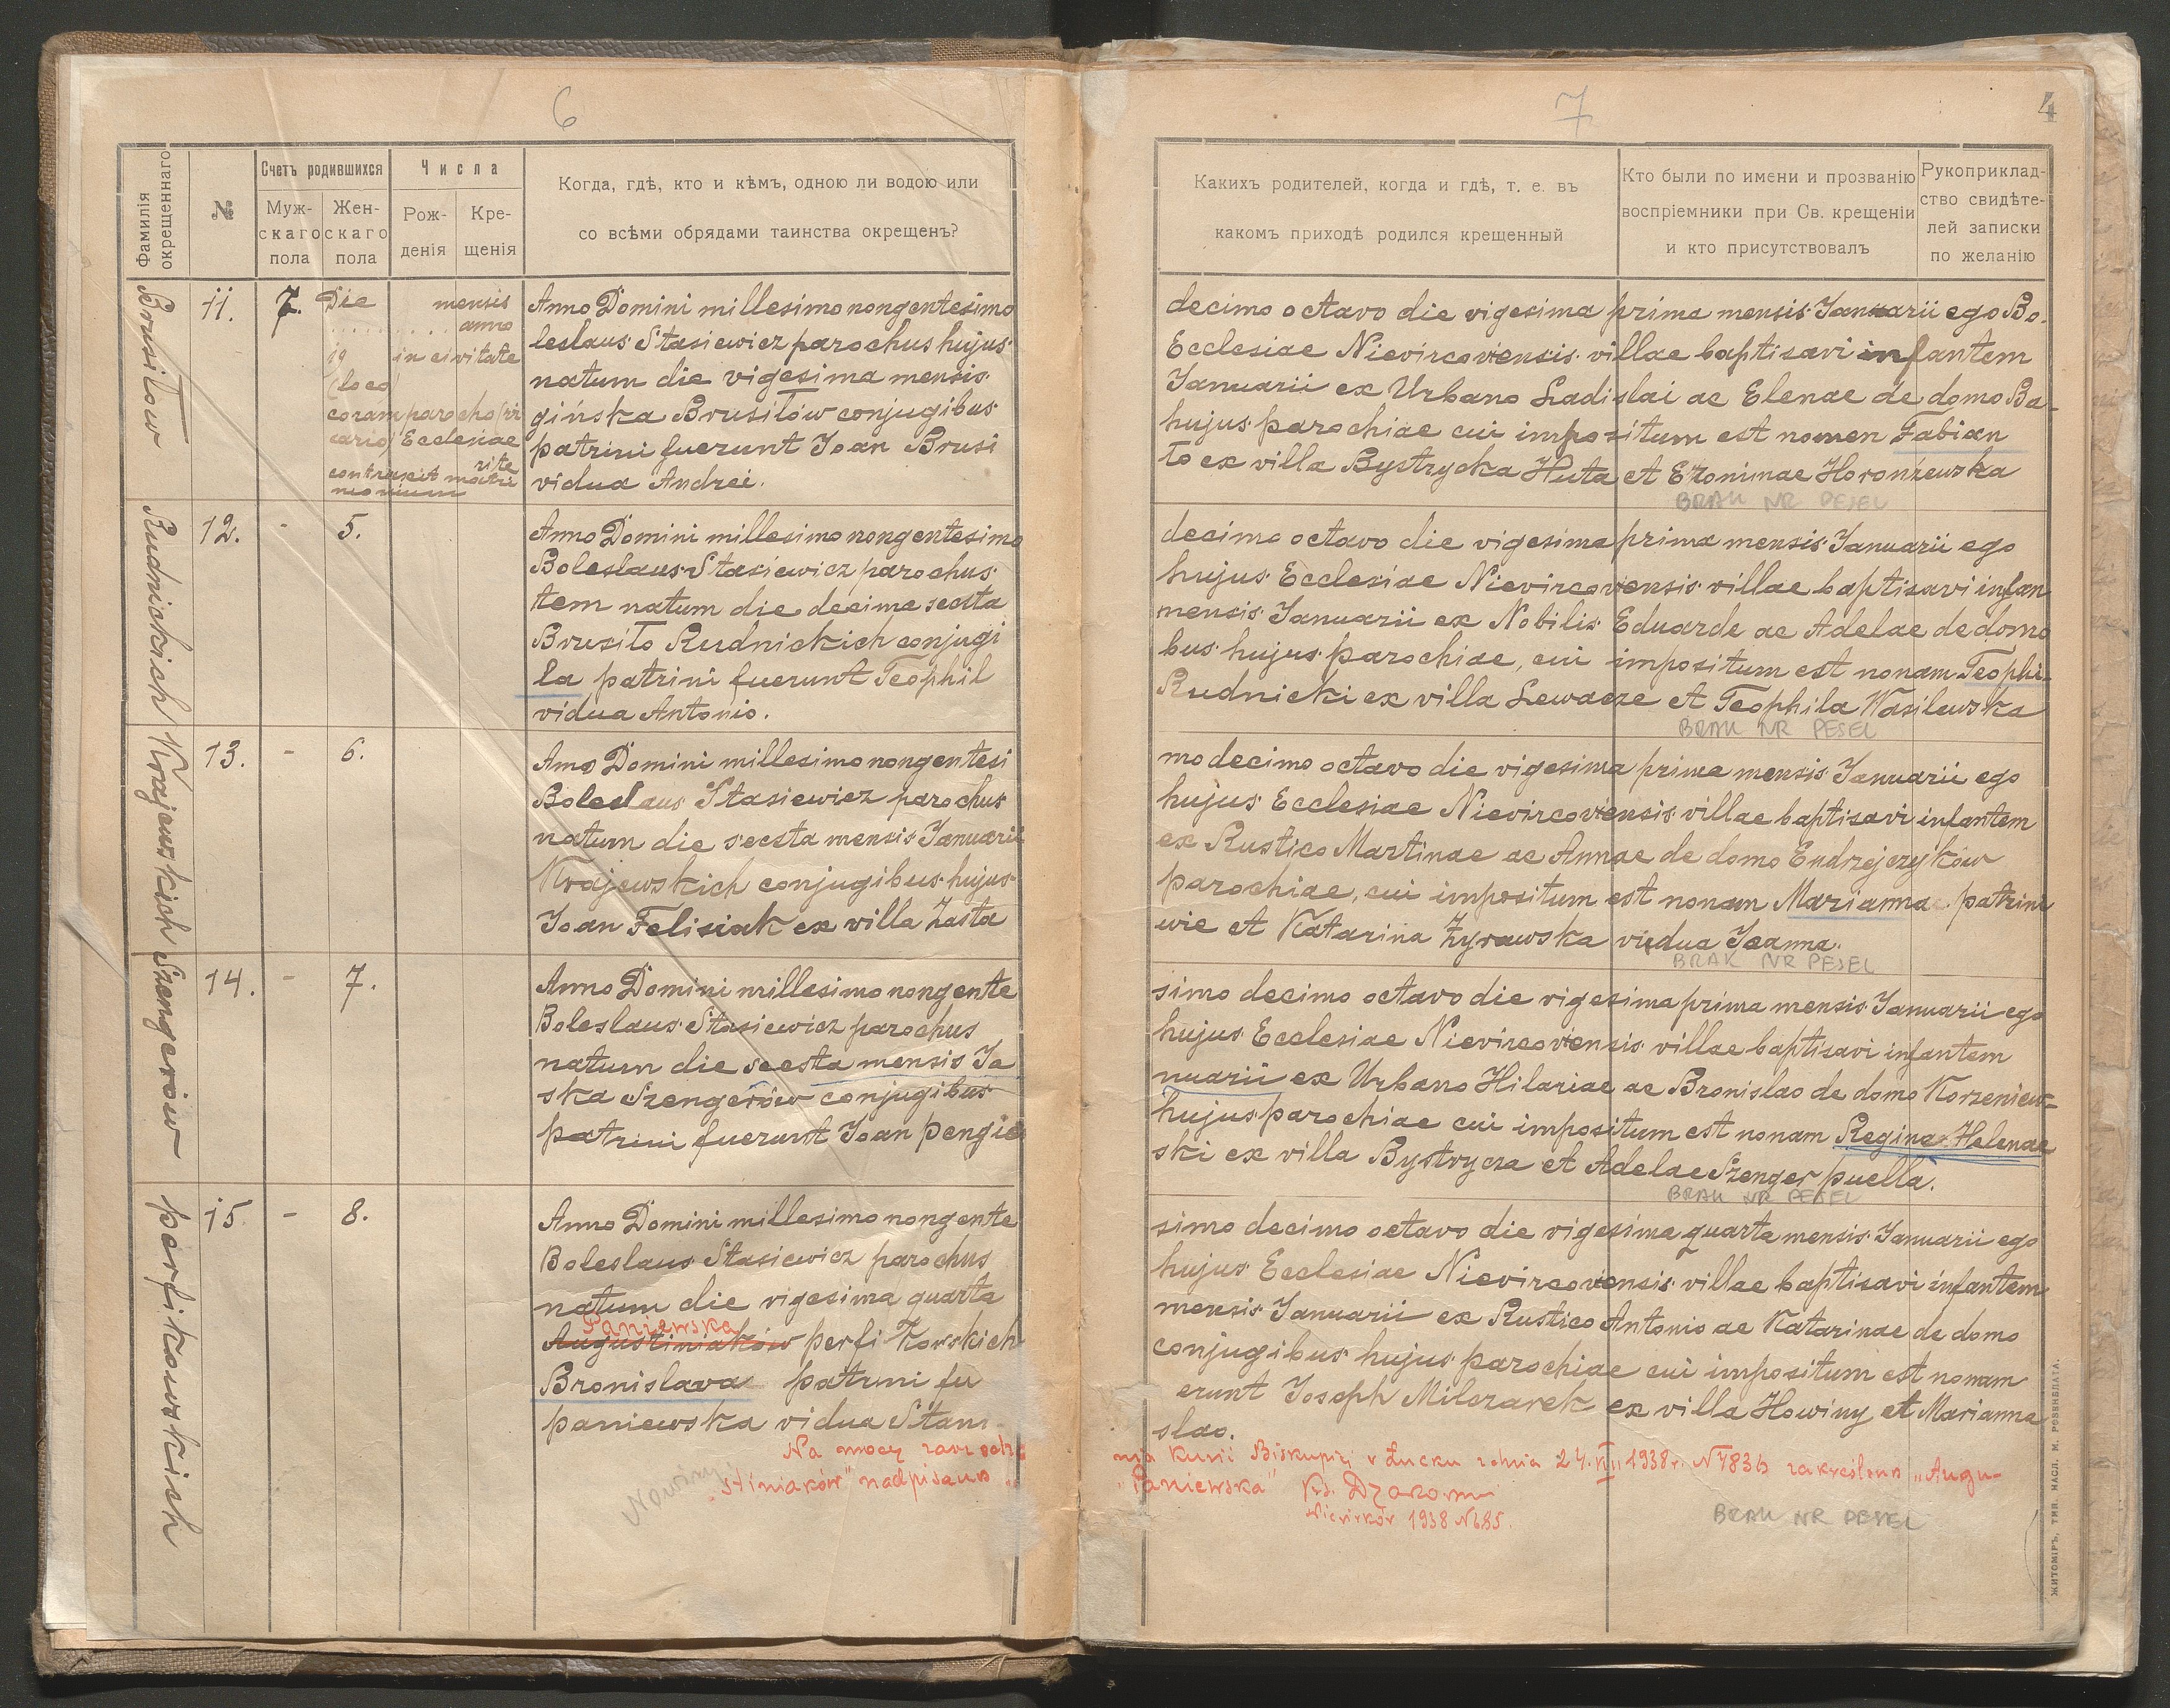 6
Фамилія окрещеннаго
№
Счетъ родившихся
Мужскаго пола
Женскаго пола
Числа
Рожденія
Крещенія
Когда, гдѣ, кто и кѣмъ, одною ли водою или
со всѣми обрядами таинства окрещенъ?
Brusiłow
11.
7.
Die mensis
anno
19 in civitate
(loco)
coram parocho (vi
cario) Ecclesiae
rite
contraxit matri
monium
Anno Domini millesimo nongentesimo
leslaus Stasiewicz parochus hujus
natum die vigesima mensis
gińska Brusiłów conjugibus
patrini fuerunt Joan Brusi
vidua Andrei.
Rudnickich
12.
-
5.
Anno Domini millesimo nongentesimo
Boleslaus Stasiewicz parochus
tem natum die decima secsta
Brusiło Rudnickich conjugi
la patrini fuerunt Teophil
vidua Antonio.
Krajewskich
13.
-
6.
Anno Domini millesimo nongentesi
Boleslaus Stasiewicz parochus
natum die secsta mensis Januarii
Krajewskich conjugibus hujus
Joan Felisiak ex villa Zasta
Szengerów
14.
-
7.
Anno Domini millesimo nongente
Boleslaus Stasiewicz parochus
natum die secsta mensis Ja
ska Szengerów conjugibus
patrini fuerunt Joan Pengie
perfikowskich
15
-
8.
Anno Domini millesimo nongente
Boleslaus Stasiewicz parochus
natum die vigesima quarta
Paniewska
Augustiniaków perfikowskich
Bronislava patrini fu
paniewska vidua Stani
Na mocy
stiniaków" nadpisano
7
4
Какихъ родителей, когда и гдѣ, т. е. въ
какомъ приходѣ родился крещенный
Кто были по имени и прозванію
воспріемники при Св. крещеніи
и кто присутствовалъ
Рукоприклад-
ство свидѣте-
лей записки
по желанію
decimo octavo die vigesima prima mensis Januarii ego Bo-
Ecclesiae Nievircoviensis villae baptisavi infantem
Januarii ex Urbano Ladislai ac Elenae de domo Ba-
hujus parochiae cui impositum est nomen Fabian
ło ex villa Bystrycka Huta et Eronimae Horonżewska
BRAK NR PESEL
decimo octavo die vigesima prima mensis Januarii ego
hujus Ecclesiae Nievircoviensis villae baptisavi infan
mensis Januarii ex Nobilis Eduarde ac Adelae de domo
bus hujus parochiae, cui impositum est nonam Teophi-
Rudnicki ex villa Lewacze et Teophila Wasilewska
BRAK NR PESEL
mo decimo octavo die vigesima prima mensis Januarii ego
hujus Ecclesiae Nievircoviensis villae baptisavi infantem
ex Rustico Martinae ac Annae de domo Endrzejczyków
parochiae, cui impositum est nonam Marianna patrini
wie et Katarina Zyrawska vidua Joanna.
BRAK NR PESEL
simo decimo octavo die vigesima prima mensis Januarii ego
hujus Ecclesiae Nievircoviensis villae baptisavi infantem
nuarii ex Urbano Hilariae ac Bronislao de domo Korzeniew-
hujus parochiae cui impositum est nonam Regina Helenae
ski ex villa Bystrycza et Adelae Szenger puella.
BRAK NR PESEL
simo decimo octavo die vigesima quarta mensis Januarii ego
hujus Ecclesiae Nievircoviensis villae baptisavi infantem
mensis Januarii ex Rustico Antonio ac Katarinae de domo
conjugibus hujus parochiae cui impositum est nonam
erunt Joseph Milczarek ex villa Howiny et Marianna
slao.
nia Kurii Biskupiej w Łucku z dnia 24. 1938 r. N 4836 zakreślono „Augu-
„Paniewska" Ks.
Niewirków 1938 N 685.
BRAK NR PESEL
ЖИТОМІРЪ, ТИП. НАСЛ. М. РОЗЕНБЛАТА.